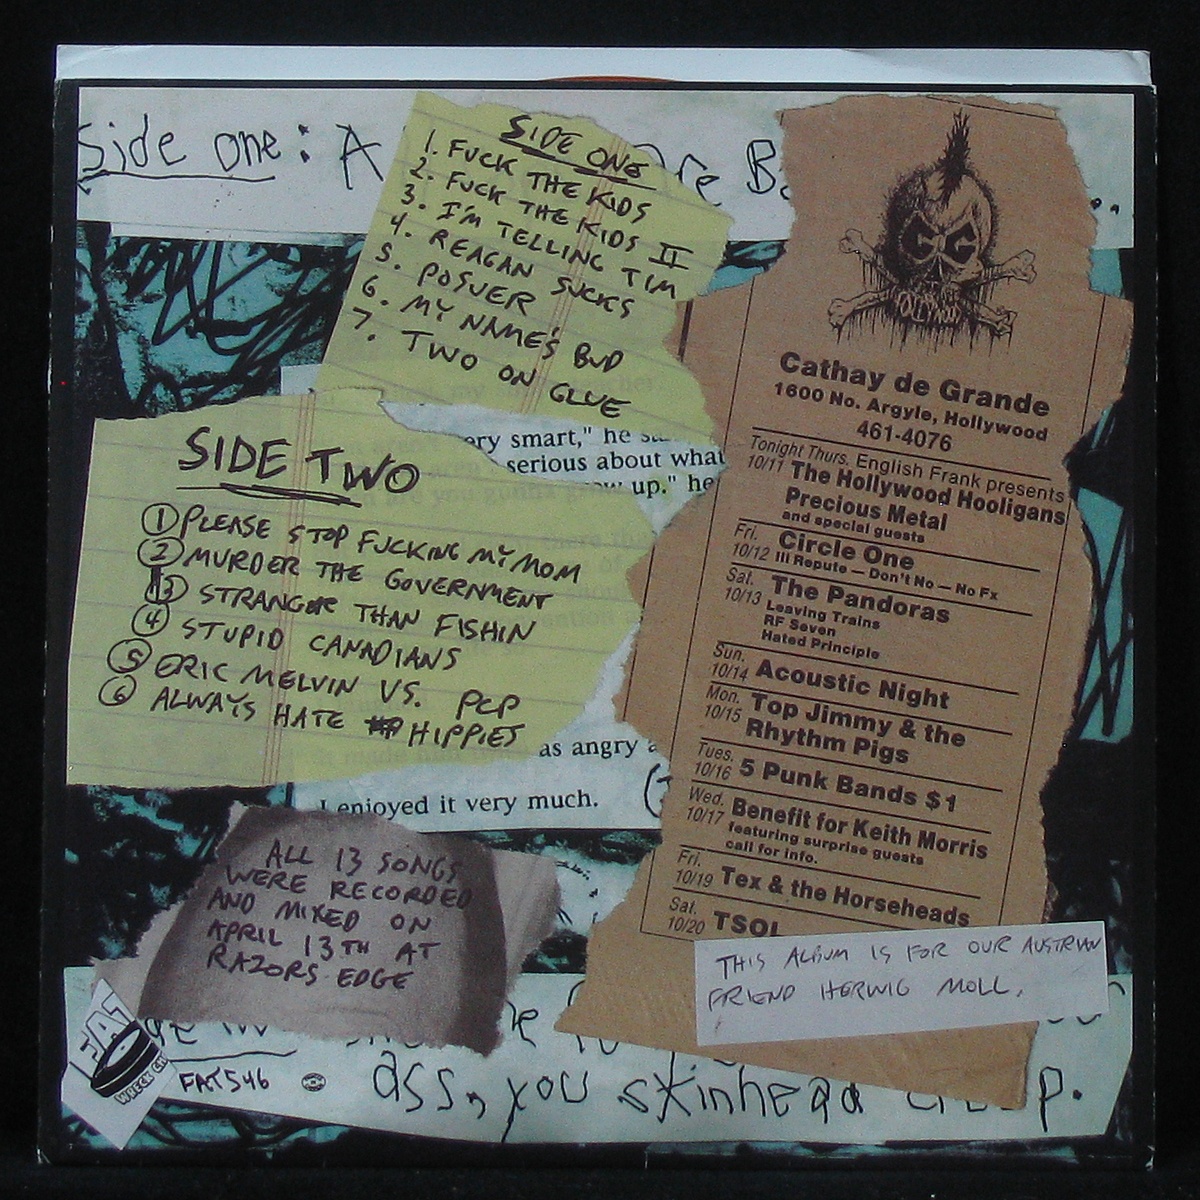 Side one: A
re B
SIDE ONE
1. FUCK THE KIDS
2. FUCK THE KIDS II
3. I'M TELLING TIM
4. REAGAN SUCKS
5. POSUER
6. MY NAME'S BUD
7. TWO ON GLUE
SIDE TWO
1 PLEASE STOP FUCKING MY MOM
2 MURDER THE GOVERNMENT
3 STRANGER THAN FISHIN
4 STUPID CANADIANS
5 ERIC MELVIN VS. PCP
6 ALWAYS HATE HIPPIES
ery smart," he
serious about what
up." he
as angry a
I enjoyed it very much.
ALL 13 SONGS
WERE RECORDED
AND MIXED ON
APRIL 13TH AT
RAZORS EDGE
HOLLYWOOD
Cathay de Grande
1600 No. Argyle, Hollywood
461-4076
Tonight Thurs. English Frank presents
10/11 The Hollywood Hooligans
Precious Metal
and special guests
Fri. Circle One
10/12 Ill Repute — Don't No — No Fx
Sat. The Pandoras
10/13 Leaving Trains
RF Seven
Hated Principle
Sun.
10/14 Acoustic Night
Mon. Top Jimmy & the
10/15 Rhythm Pigs
Tues.
10/16 5 Punk Bands $1
Wed. Benefit for Keith Morris
10/17 featuring surprise guests
call for info.
Fri.
10/19 Tex & the Horseheads
Sat.
10/20 TSOL
THIS ALBUM IS FOR OUR AUSTRIAN
FRIEND HERWIG MOLL.
FAT
WRECK CH
FAT546
ass, you skinhead
p.